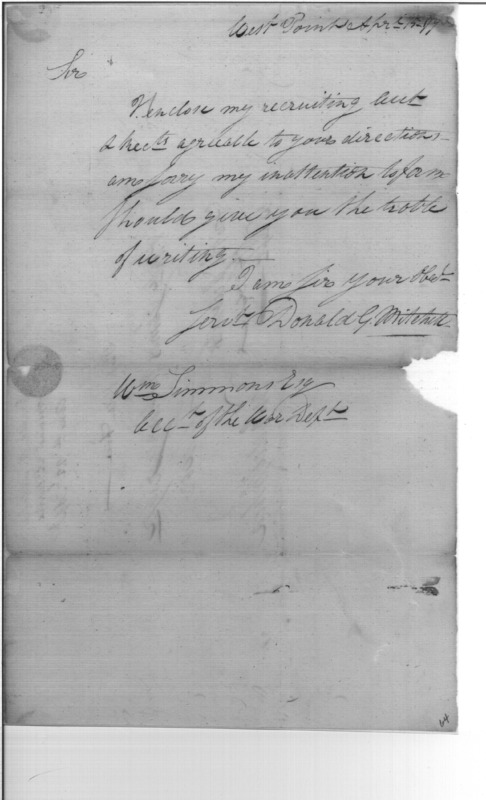 West Point Apr. 15 97
Sir
I enclose my recruiting acct
& rects agreeable to your directions –
am sorry my inattention to form
should give you the troble
of writing. —
I am Sir your Obdt
Servt Donald G. Mitchell
Wm Simmons Esq
Acct of the War Dept
64